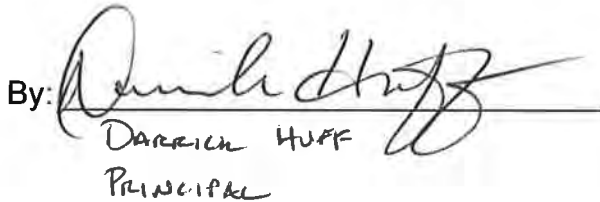 By: Darrick Huff
DARRICK HUFF
PRINCIPAL